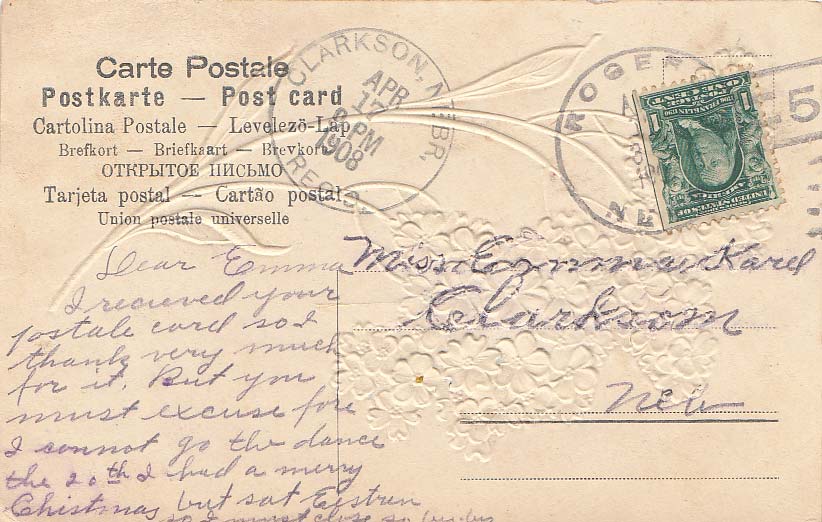 Carte Postale
Postkarte — Post card
Cartolina Postale — Levelezö-Lap
Brefkort — Briefkaart — Brevkort
ОТКРЫТОЕ ПИСЬМО
Tarjeta postal — Cartão postal
Union postale universelle
CLARKSON, NEBR.
APR
17
8 PM
1908
REC'D.
ROGERS
NE
5
ONE CENT
1 1
POSTAGE
FRANKLIN
UNITED STATES OF AMERICA
Miss Emma Karel
Clarkson
Neb
Dear Emma
I recieved your
postale card so I
thank very much
for it. But you
must excuse fore
I connot go the dance
the 20th I had a merry
Chistmas but sat Eestren
so I must close so by by